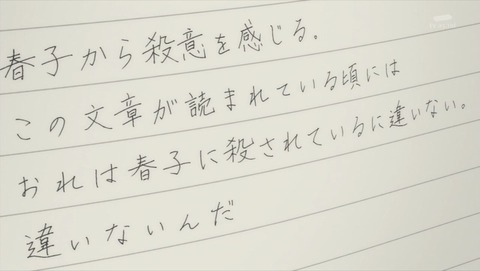 春子から殺意を感じる。
この文章が読まれている頃には
おれは春子に殺されているに違いない。
違いないんだ